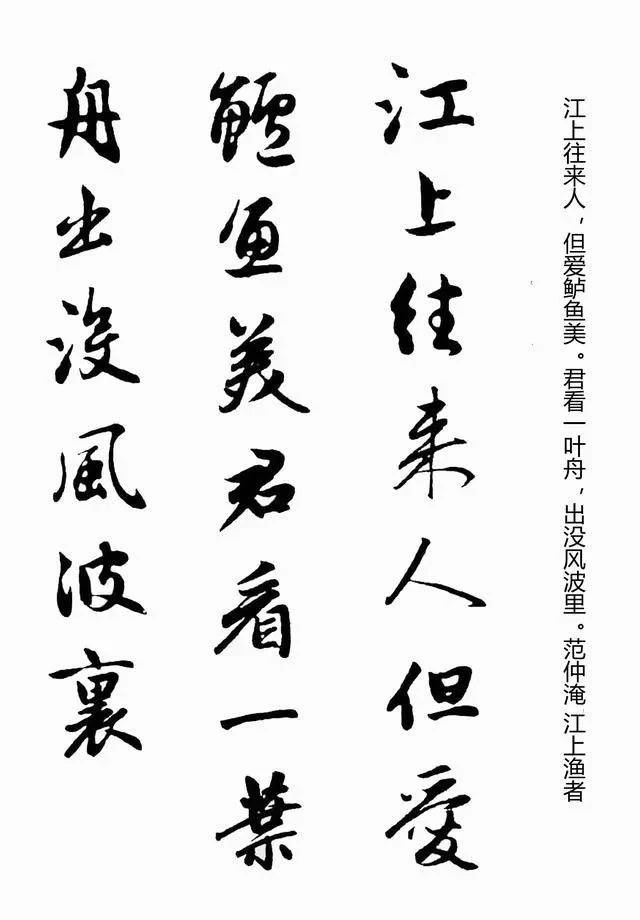 江上往来人，但爱鲈鱼美。君看一叶舟，出没风波里。范仲淹 江上渔者
江上往来人但愛
鱸魚美君看一葉
舟出没風波裏